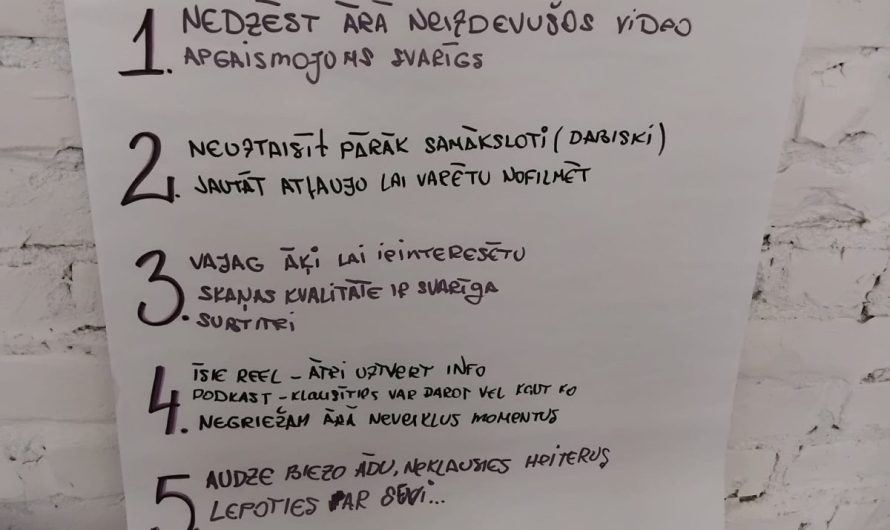 1. NEDZĒST ĀRĀ NEIZDEVUŠOS VIDEO
APGAISMOJUMS SVARĪGS
2. NEUZTAISĪT PĀRĀK SAMĀKSLOTI (DABISKI)
JAUTĀT ATĻAUJU LAI VARĒTU NOFILMĒT
3. VAJAG ĀĶI LAI IEINTERESĒTU
SKAŅAS KVALITĀTE IR SVARĪGA
SUBTITRI
4. ĪSIE REEL - ĀTRI UZTVERT INFO
PODKAST - KLAUSĪTIES VAR DAROT VEL KAUT KO
NEGRIEŽAM ĀRĀ NEVEIKLUS MOMENTUS
5 AUDZĒ BIEZO ĀDU, NEKLAUSIES HEITERUS
LEPOTIES PAR SEVI...